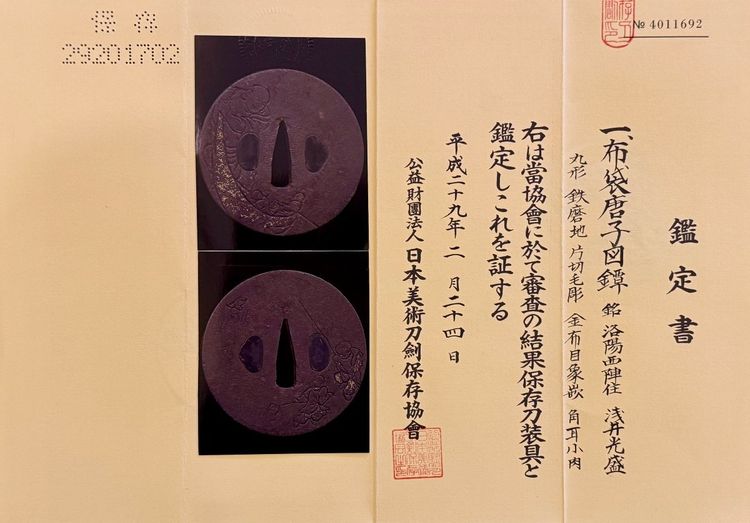 保存
29201702
№ 4011692
鑑定書
一、布袋唐子図鐔 銘 洛陽西陣住 浅井光盛
丸形 鉄磨地 片切毛彫 金布目象嵌 角耳小肉
右は當協會に於て審査の結果保存刀装具と
鑑定しこれを証する
平成二十九年 二 月 二十四 日
公益財團法人 日本美術刀劍保存協會